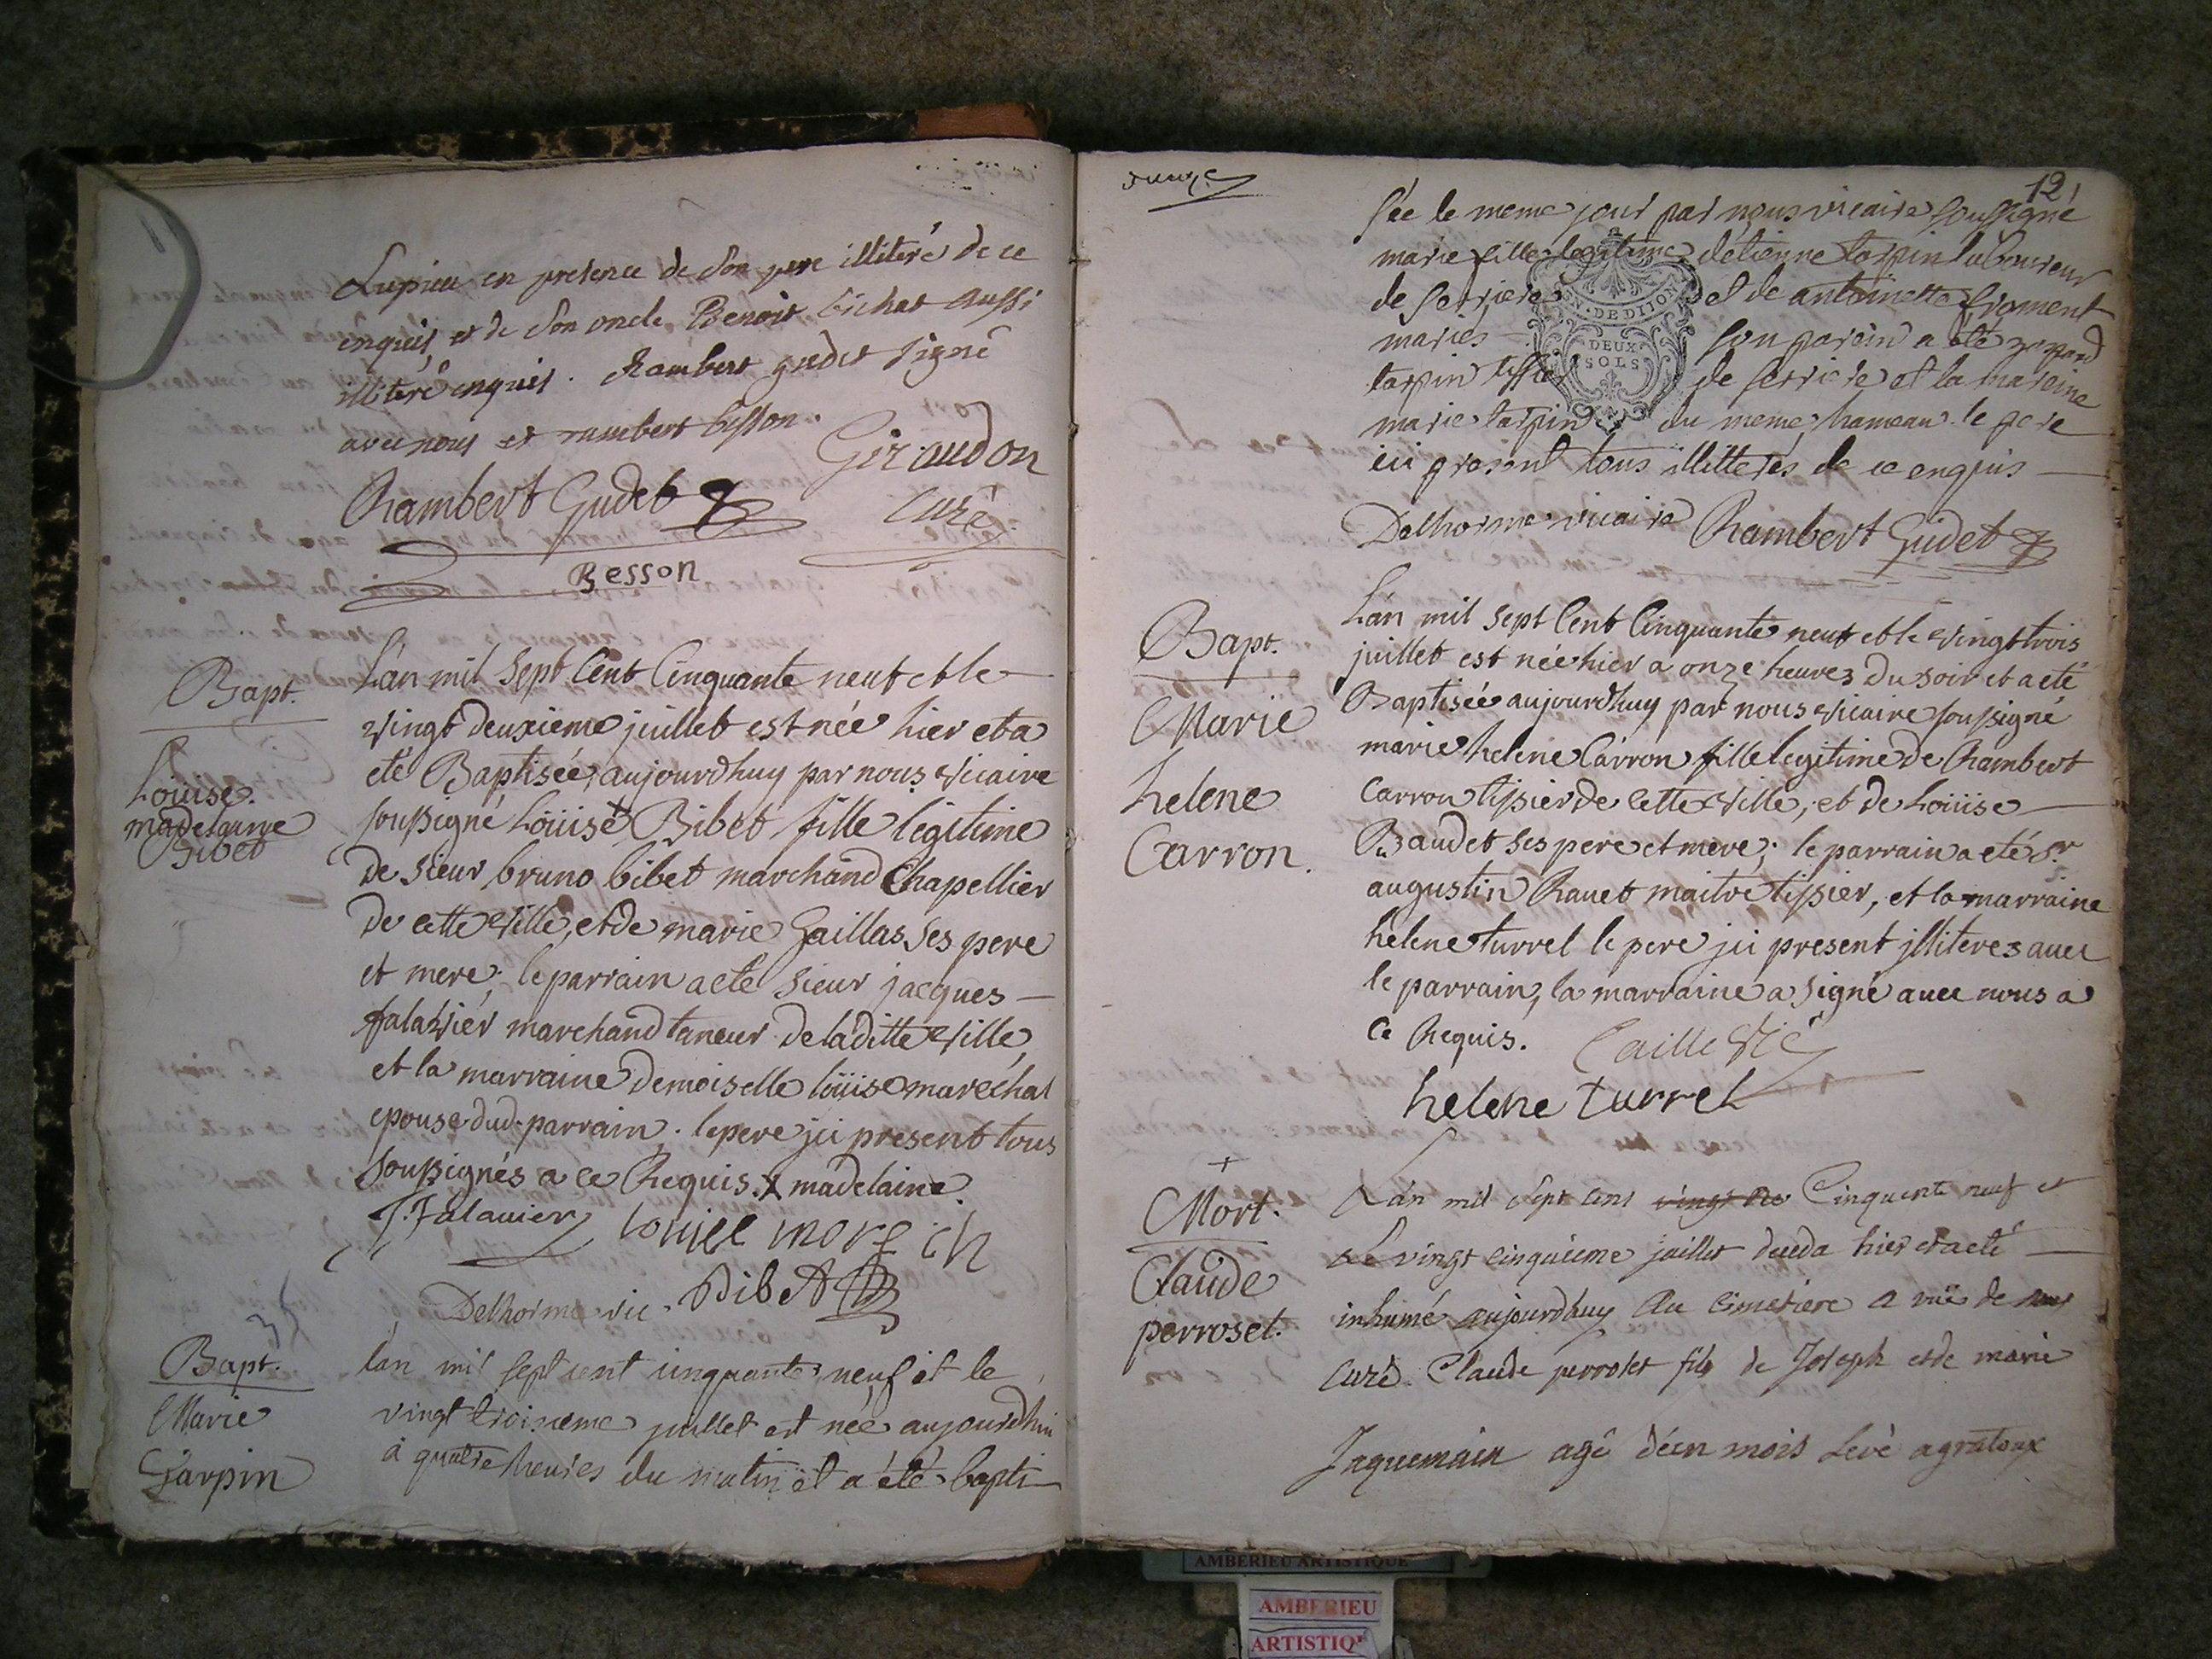 Lupieu en presence de son pere illiteré de ce
enquis, et de son oncle Benoit bichat aussi
illiteré enquis. Rambert gudet signé
avec nous et rambert besson.
Giraudon
curé
Rambert Gudet
Besson
Bapt.
Loüise
madelaine
Bibet
L'an mil sept Cent Cinquante neuf et le
vingt deuxieme juillet est née hier et a
eté Baptisée aujourdhuy par nous vicaire
soussigné Loüise Bibet fille legitime
de sieur bruno bibet marchand Chapellier
de cette ville, et de marie Gaillas ses pere
et mere; le parrain a eté sieur jacques
falavier marchand taneur de laditte ville,
et la marraine demoiselle loüise maréchal
epouse dud. parrain. le pere jci present tous
soussignés a ce Requis. x madelaine.
J. falavier
Delhorme vic.
Bibet
Bapt.
Marie
Tarpin
l'an mil sept cent cinquante neuf et le
vingt troisieme juillet est née aujourdhui
à quatre heures du matin et a été bapti
12
sée le meme jour par nous vicaire soussigné
marie fille legitime d'etienne tarpin laboureur
de serriere et de antoinette froment
mariés son parein a eté
tarpin tissier de serriere et la mareine
marie tarpin du meme hameau le pere
ici present tous illitterés de ce enquis
DE DIJON
DEUX
SOLS
Delhorme vicaire Rambert Gudet
Bapt.
Marie
helene
Carron.
L'an mil sept Cent Cinquante neuf et le vingt trois
juillet est née hier a onze heures du soir et a eté
Baptisée aujourdhuy par nous vicaire soussigné
marie helene Carron fille legitime de Rambert
Carron tissier de cette ville, et de Loüise
Baudet ses pere et mere; le parrain a eté Sr
augustin Ravet maitre tissier, et la marraine
helene turrel le pere jci present jlliteres avec
le parrain, la marraine a signé avec nous a
ce Requis.
helene turrel
Mort.
Claude
perroset.
L'an mil sept cens Cinquante neuf et
le vingt cinquieme juillet deceda hier et a eté
inhumé aujourdhuy au cimetiere a vüe de nous
curé Claude perroset fils de Joseph et de marie
Jaquemain agé d'un mois
AMBERIEU ARTISTIQUE
AMBERIEU
ARTISTIQ